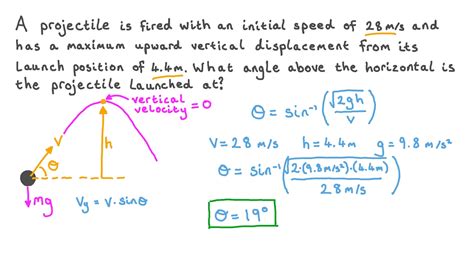 A projectile is fired with an initial speed of 28 m/s and
has a maximum upward vertical displacement from its
launch position of 4.4m. What angle above the horizontal is
the projectile launched at?
vertical
velocity = 0
v
θ
h
mg
Vy = v·sinθ
θ = sin⁻¹(√2gh/v)
V = 28 m/s h = 4.4m g = 9.8 m/s²
θ = sin⁻¹(√2·(9.8m/s²)·(4.4m)/28m/s)
θ = 19°